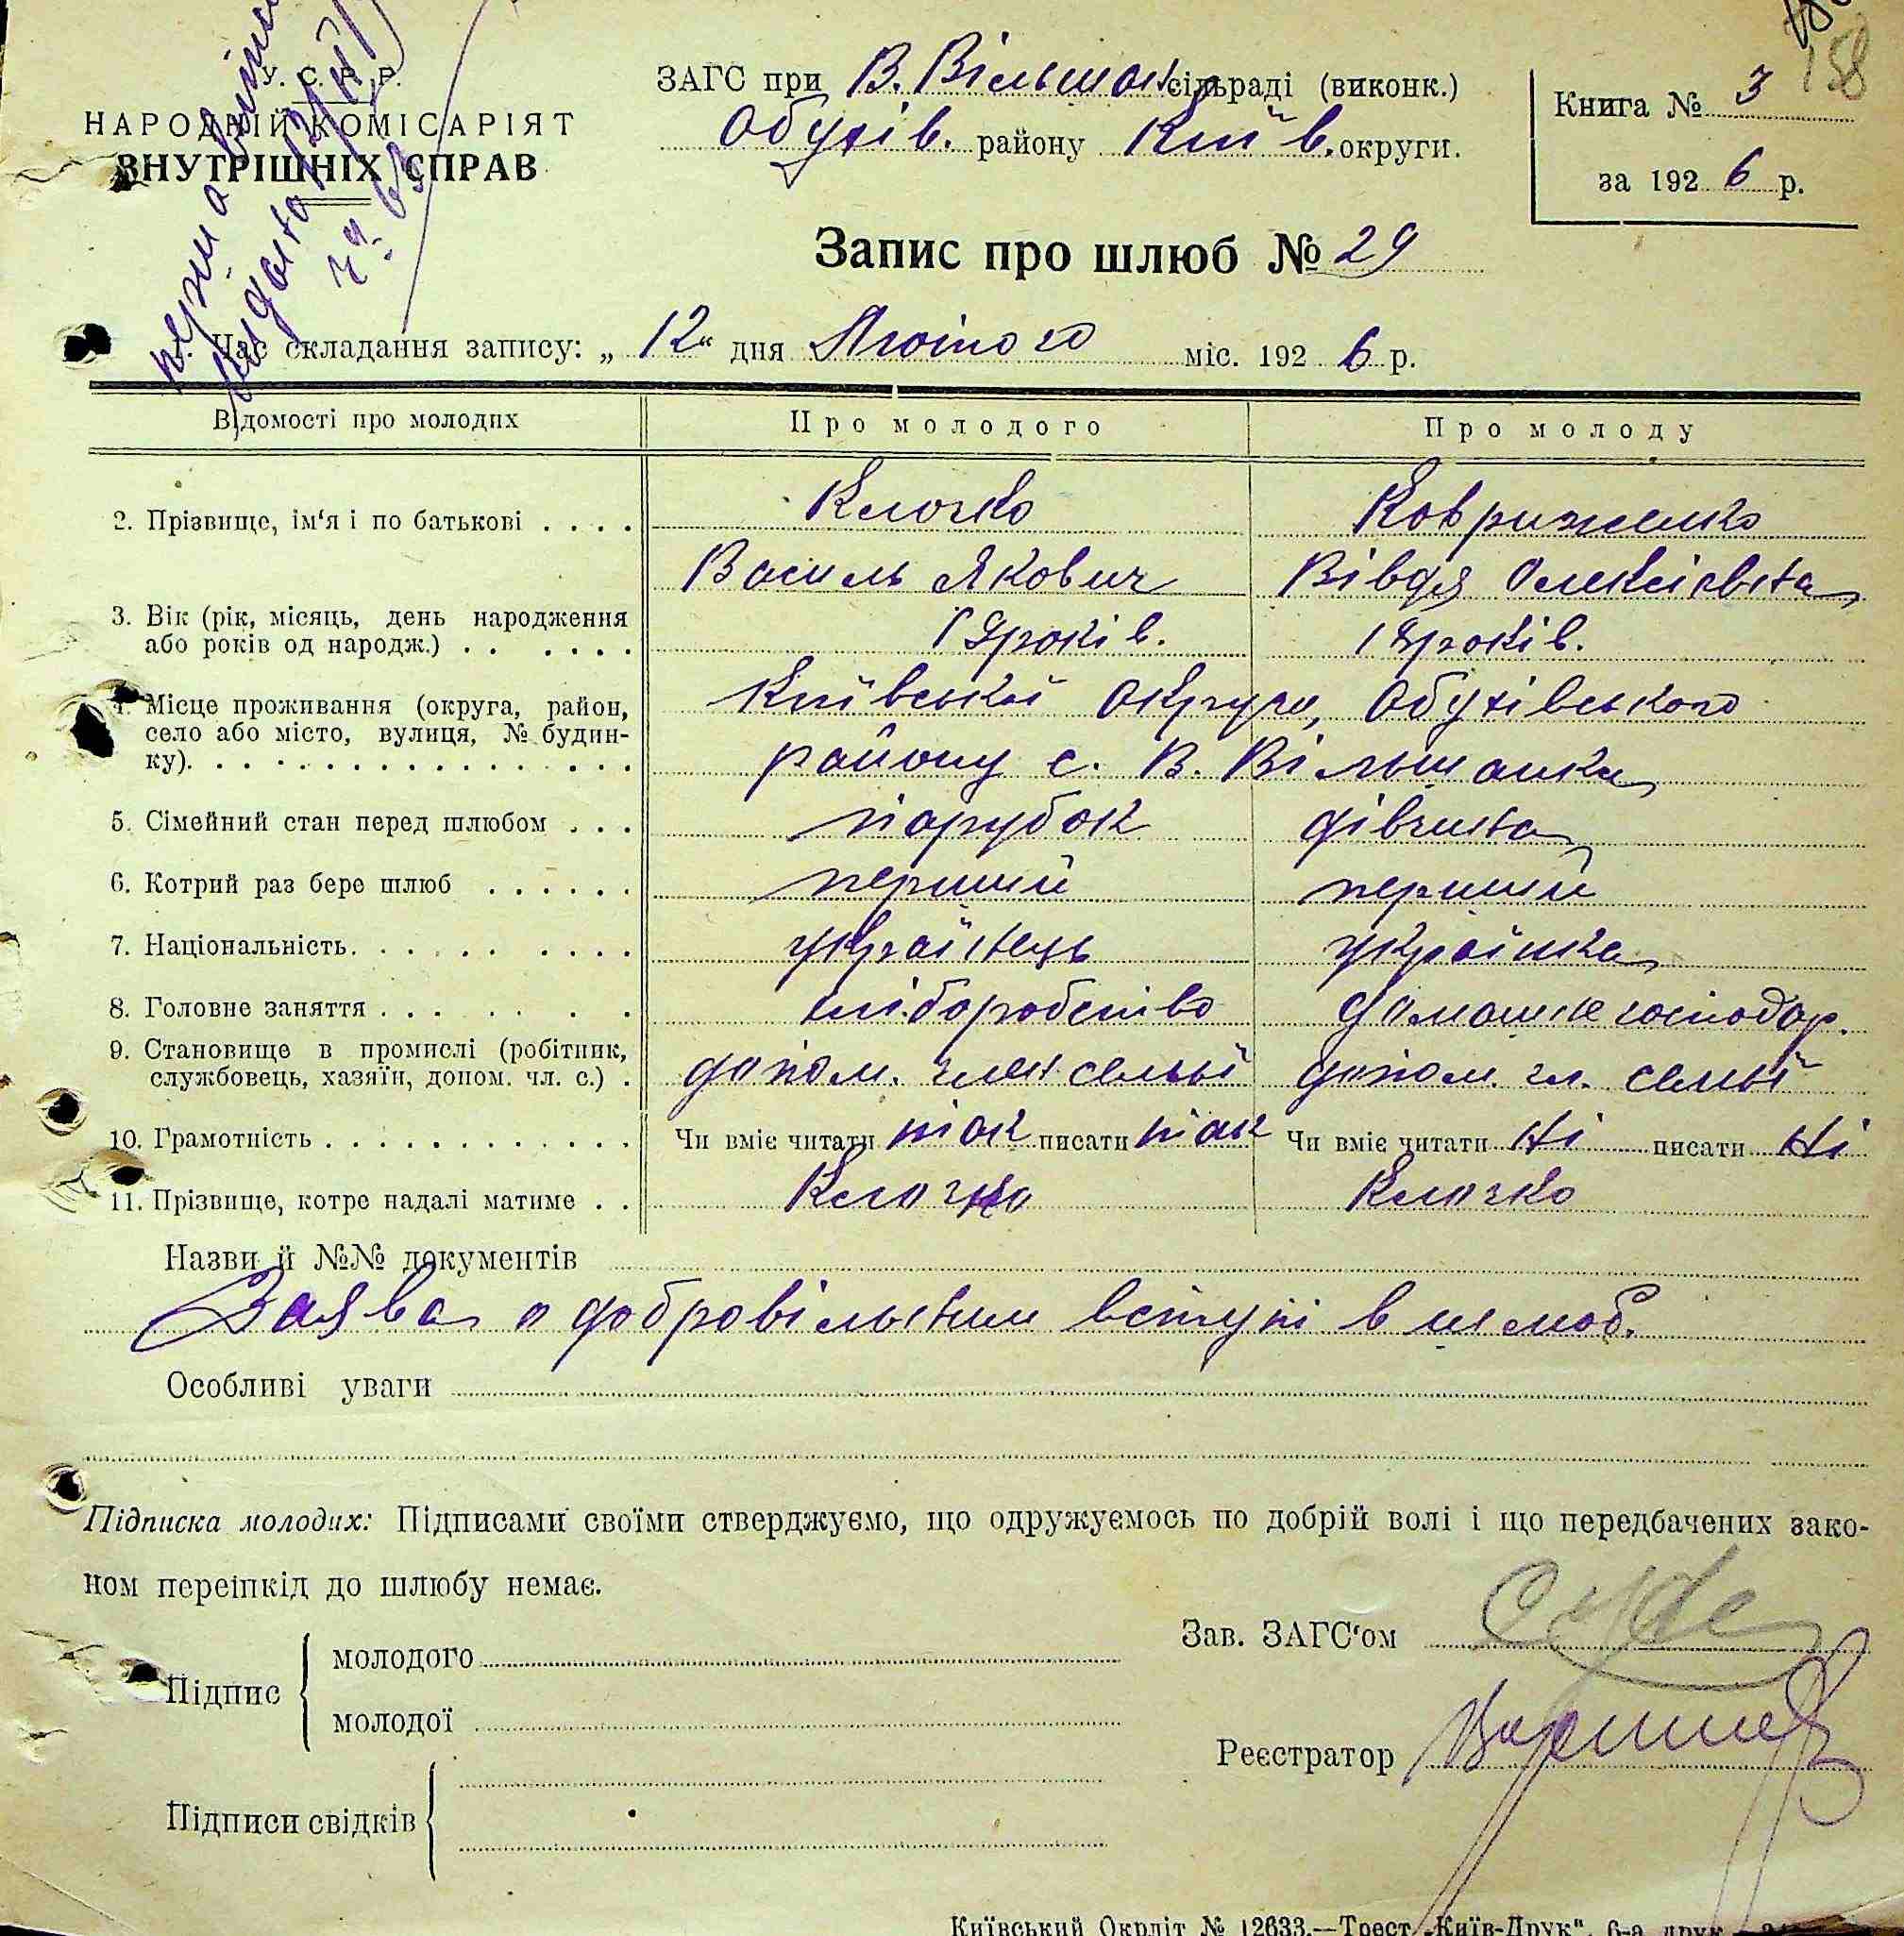 158
У. С. Р. Р.
НАРОДНІЙ КОМІСАРІЯТ
ВНУТРІШНІХ СПРАВ
ЗАГС при В. Вільшан. сільраді (виконк.)
Обухів. району Київ. округи.
Книга № 3
за 1926 р.
Запис про шлюб № 29
Час складання запису: „12" дня Лютого міс. 1926 р.
Відомості про молодих Про молодого Про молоду
2. Прізвище, ім'я і по батькові . . . . Клочко Ковриженко
Василь Якович Вівдя Олексіївна
3. Вік (рік, місяць, день народження
або років од народж.) . . . . . . років. 18 років.
4. Місце проживання (округа, район,
село або місто, вулиця, № будин-
ку). . . . . . . . . . . . . . . .
Київської Округи, Обухівського
району с. В. Вільшанка
5. Сімейний стан перед шлюбом . . . парубок дівчина
6. Котрий раз бере шлюб . . . . . . перший перший
7. Національність. . . . . . . . . українець українка
8. Головне заняття . . . . . . . хліборобство домашнє господар.
9. Становище в промислі (робітник,
службовець, хазяїн, допом. чл. с.) . допом. член семьї допом. чл. семьї
10. Грамотність . . . . . . . . . . . . Чи вміє читати так писати так Чи вміє читати ні писати ні
11. Прізвище, котре надалі матиме . . Клочко Клочко
Назви й №№ документів
Заява о добровільним вступі в шлюб.
Особливі уваги
Підписка молодих: Підписами своїми стверджуємо, що одружуємось по добрій волі і що передбачених зако-
ном переіпкід до шлюбу немає.
Зав. ЗАГС'ом
Підпис
молодого
молодої
Реєстратор
Підписи свідків
Київський Окрліт № 12633.—Трест „Київ-Друк", 6-а друк